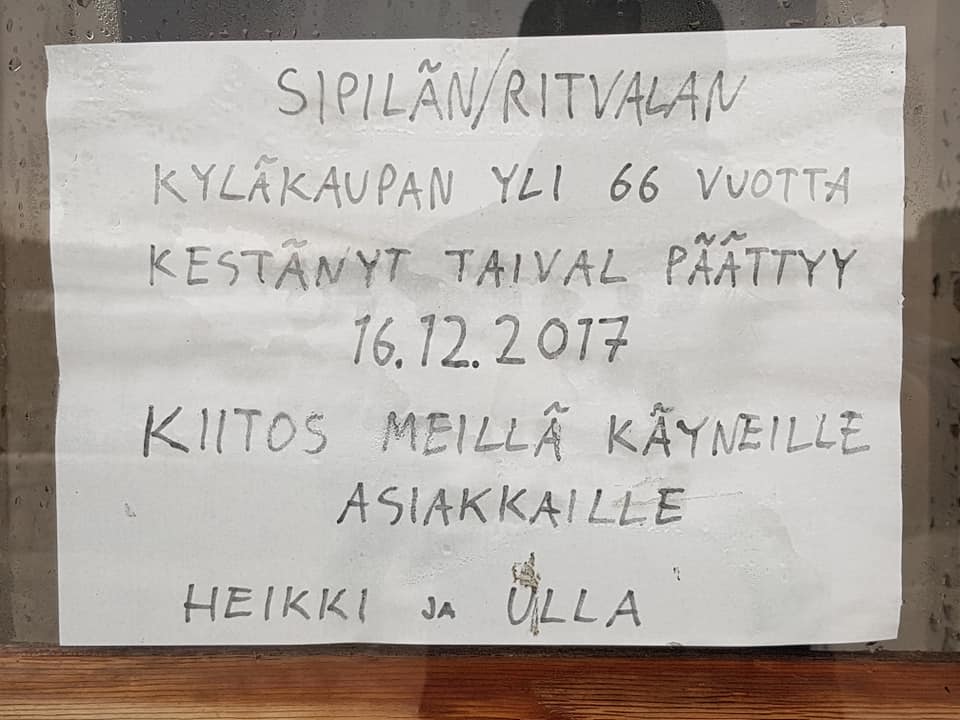 SIPILÄN/RITVALAN
KYLÄKAUPAN YLI 66 VUOTTA
KESTÄNYT TAIVAL PÄÄTTYY
16.12.2017
KIITOS MEILLÄ KÄYNEILLE
ASIAKKAILLE
HEIKKI JA ULLA